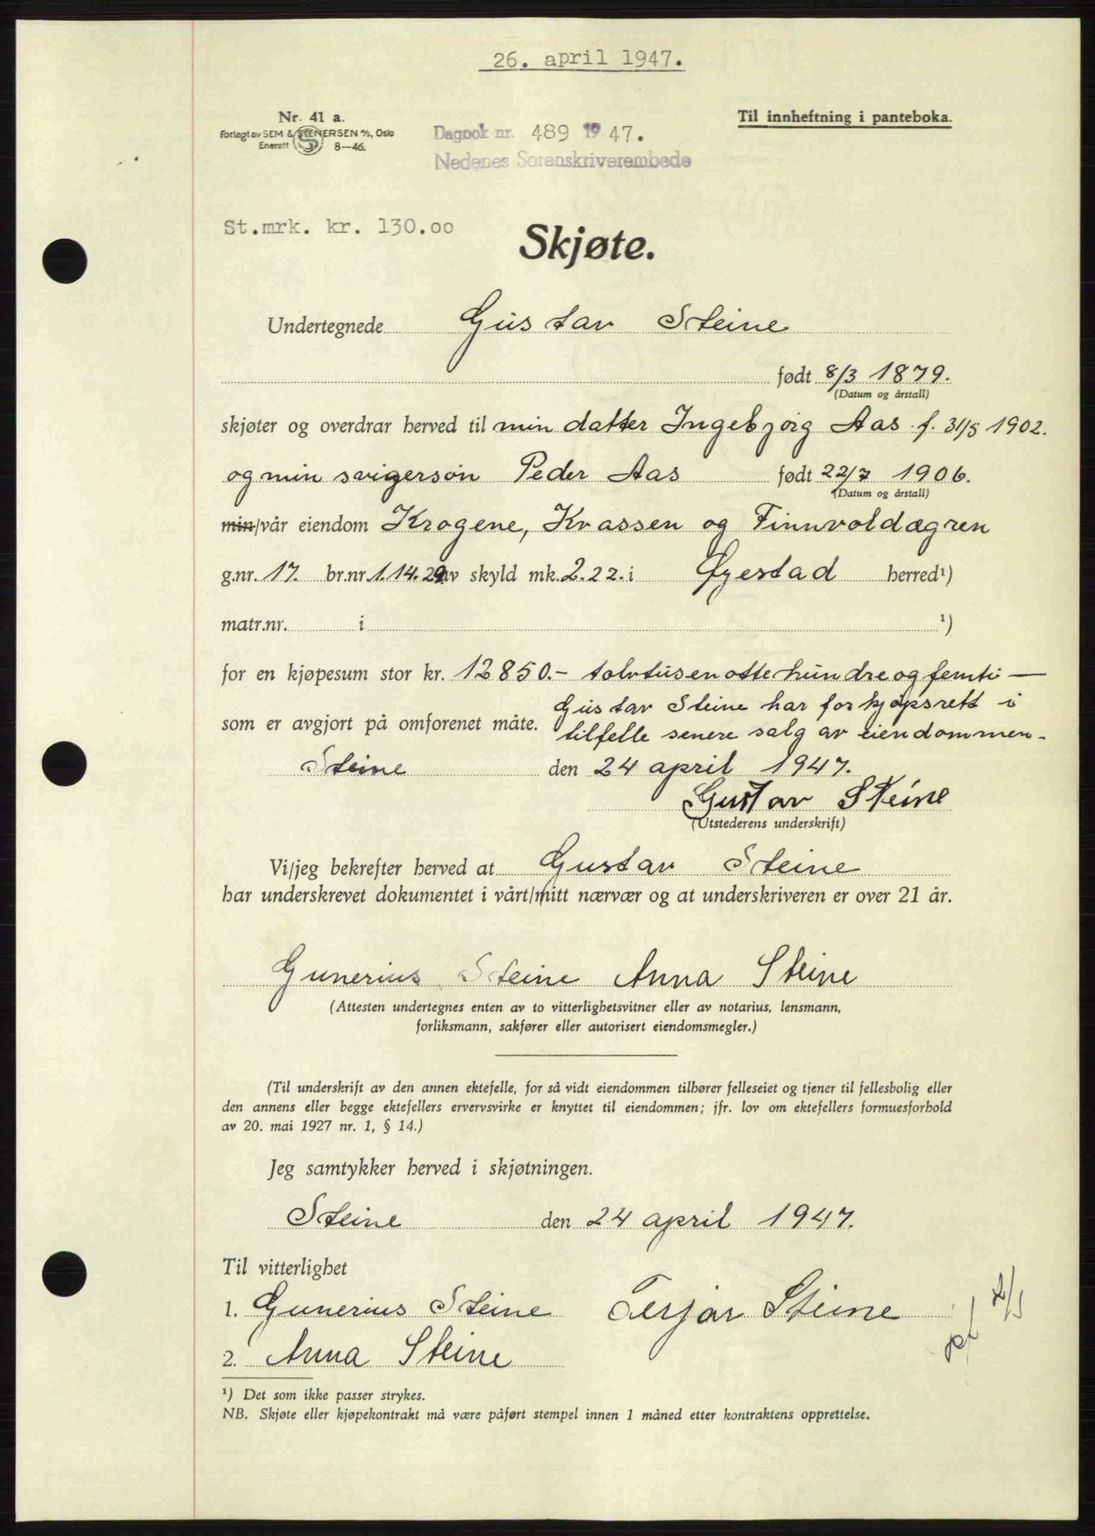 26. april 1947.
Nr. 41 a.
Forlagt av SEM & STENERSEN A/S, Oslo
Enerett 8—46.
Til innheftning i panteboka.
Dagbok nr. 489 1947.
Nedenes Sorenskriverembede
St.mrk. kr. 130.00
Skjøte.
Undertegnede Gustav Steine
født 8/3 1879.
(Datum og årstall)
skjøter og overdrar herved til min datter Ingebjørg Aas f. 31/5 1902.
og min svigersøn Peder Aas født 22/7 1906.
(Datum og årstall)
min/vår eiendom Krogene, Kvassen og Finnvoldægren
g.nr. 17. br.nr. 1.14.29 av skyld mk. 2.22. i Øyestad herred¹)
matr.nr. i ¹)
for en kjøpesum stor kr. 12850.- tolvtusenottehundreogfemti —
som er avgjort på omforenet måte. Gustav Steine har forkjøpsrett i
tilfelle senere salg av eiendommen.
Steine den 24 april 1947.
Gustav Steine
(Utstederens underskrift)
Vi/jeg bekrefter herved at Gustav Steine
har underskrevet dokumentet i vårt/mitt nærvær og at underskriveren er over 21 år.
Gunerius Steine Anna Steine
(Attesten undertegnes enten av to vitterlighetsvitner eller av notarius, lensmann,
forliksmann, sakfører eller autorisert eiendomsmegler.)
(Til underskrift av den annen ektefelle, for så vidt eiendommen tilhører felleseiet og tjener til fellesbolig eller
den annens eller begge ektefellers ervervsvirke er knyttet til eiendommen; jfr. lov om ektefellers formuesforhold
av 20. mai 1927 nr. 1, § 14.)
Jeg samtykker herved i skjøtningen.
Steine den 24 april 1947.
Til vitterlighet
1. Gunerius Steine Terjar Steine
2. Anna Steine
¹) Det som ikke passer strykes.
NB. Skjøte eller kjøpekontrakt må være påført stempel innen 1 måned etter kontraktens opprettelse.